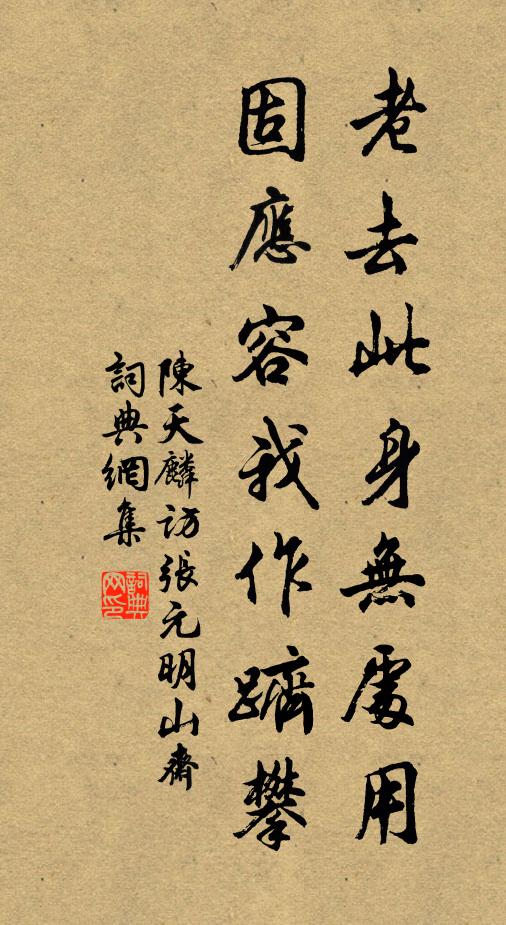 老去此身無處用
固應容我作躋攀
陳天麟訪張元明山齋
詞典網集
詞典網印